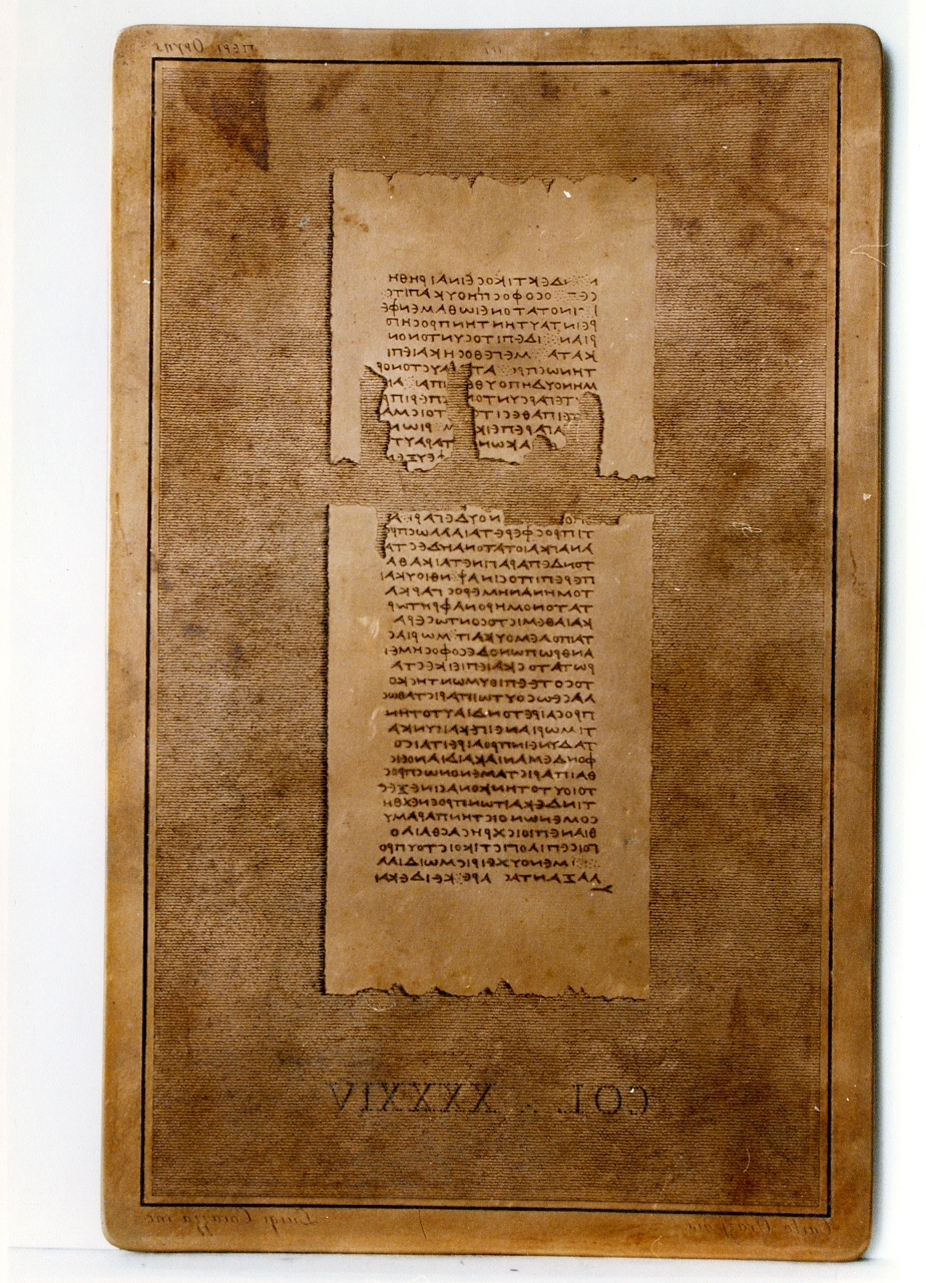 ΠΕΡΙ ΟΡΓΗΣ
Ν ΝΔΕΚΤΙΚΟCΕΙΝΑΙΡΗΘΗ
CΕΤ ΟCΟΦΟCΠΗΟΥΚΑΠΙΤC
ΓΙΝΟΤΑΤΟΝΕΙΩΘΑΜΕΝΦΕ
ΡΕΙΝΤΑΥΤΗΝΤΗΝΠΡΟCΗΓΟ
ΡΙΑΝ ΙΔΕΠΙΤΟCΥΝΤΟΝΟΝ
ΚΑΤΑ ΜΕΓΕΘΟCΗΚΑΙΕΠΙ
ΤΗΝΩCΠΡ ΑΤ ΑΥCΤΟΝΟΡ
ΜΗΝΟΥΔΗΠΟΥΘ ΙΠΑΙ ΑΙ
ΤΕΓΑΡCΥΝΤ ΠΕΡΙΠ
ΕΙΠΑΘΕCΙΤ ΤΟΙCΜΑ
ΑΓΑΡΕΠΕΙΚ Μ ΡΙΩΝ
ΑΚΩΝ ΤΑΡΑΥΤ
ΕΥΞΕΝ
ΝΟΥΔΕΓΑΡ Α
ΤΙΠΡΟCΦΕΡΕΤΑΙΑΛΛΑΩCΠΡΟ
ΑΝΑΓΚΑΙΟΤΑΤΟΝΑΗΔΕCΤΑ
ΤΟΝΔΕΠΑΡΑΓΙΝΕΤΑΙΚΑΘΑ
ΠΕΡΕΠΙΠΟCΙΝΑΨ ΝΘΙΟΥΚΑΙ
ΤΟΜΗΝΑΝΗΜΕΡΟCΓΑΡΚΑ
ΤΑΤΟΝΟΜΗΡΟΝΑΦΡΗΤΩΡ
ΚΑΙΑΘΕΜΙCΤΟCΟΝΤΩCΕΡΑ
ΤΑΙΠΟΛΕΜΟΥΚΑΙΤ ΜΩΡΙΑC
ΑΝΘΡΩΠΩΝΟΔΕCΟΦΟCΗΜΕΙ
ΡΩΤΑΤΟCΚΑΙΕΠΙΕΙΚΕCΤΑ
ΤΟCΟΤΕΕΠΙΘΥΜΩΝΤΗCΚΟ
ΛΑCΕΩCΟΥΤΩΙΠΑΡΙCΤΑΘΩC
ΠΡΟCΑΙΡΕΤΟΝΔΙΑΥΤΟΤΗΝ
ΤΙΜΩΡΙΑΝΕΙΓΕΚΑΙΓΥΝΚΑ
ΤΑΔΥΝΕΙΝΠΡΟΑΙΡΕΙΤΑΙCΟ
ΦΟΝΔΕΜΑΝΙΑΚΑΙΔΙΑΝΟΕΙC
ΘΑΙΠΑΡΙCΤΑΜΕΝΟΝΩCΠΡΟC
ΤΟΙΟΥΤΟΤΗΝΚΟΛΑCΙΝΕΞΕC
ΤΙΝΔΕΚΑΙΤΩΝΠΡΟCΕΝΕΧΘΗ
CΟΜΕΝΩΝΟΙCΤΗΝΠΑΡΑΜΥ
ΘΙΑΝΕΠΙΟΙCΧΡΗCΑCΘΑΙΛΟ
ΓΟΙCΕΠΙΛΟΓΙCΤΙΚΟΙCΤΟΥΠΡΟ
ΜΕΝΟΥΧΕΙΡΙCΜΩΙΔΙΑΛ
ΛΑΞΑΝΤΑC ΑΡΕ ΚΕΙΔΕΚΑΙ
COL. XXXXIV
Luigi Corazza inc.